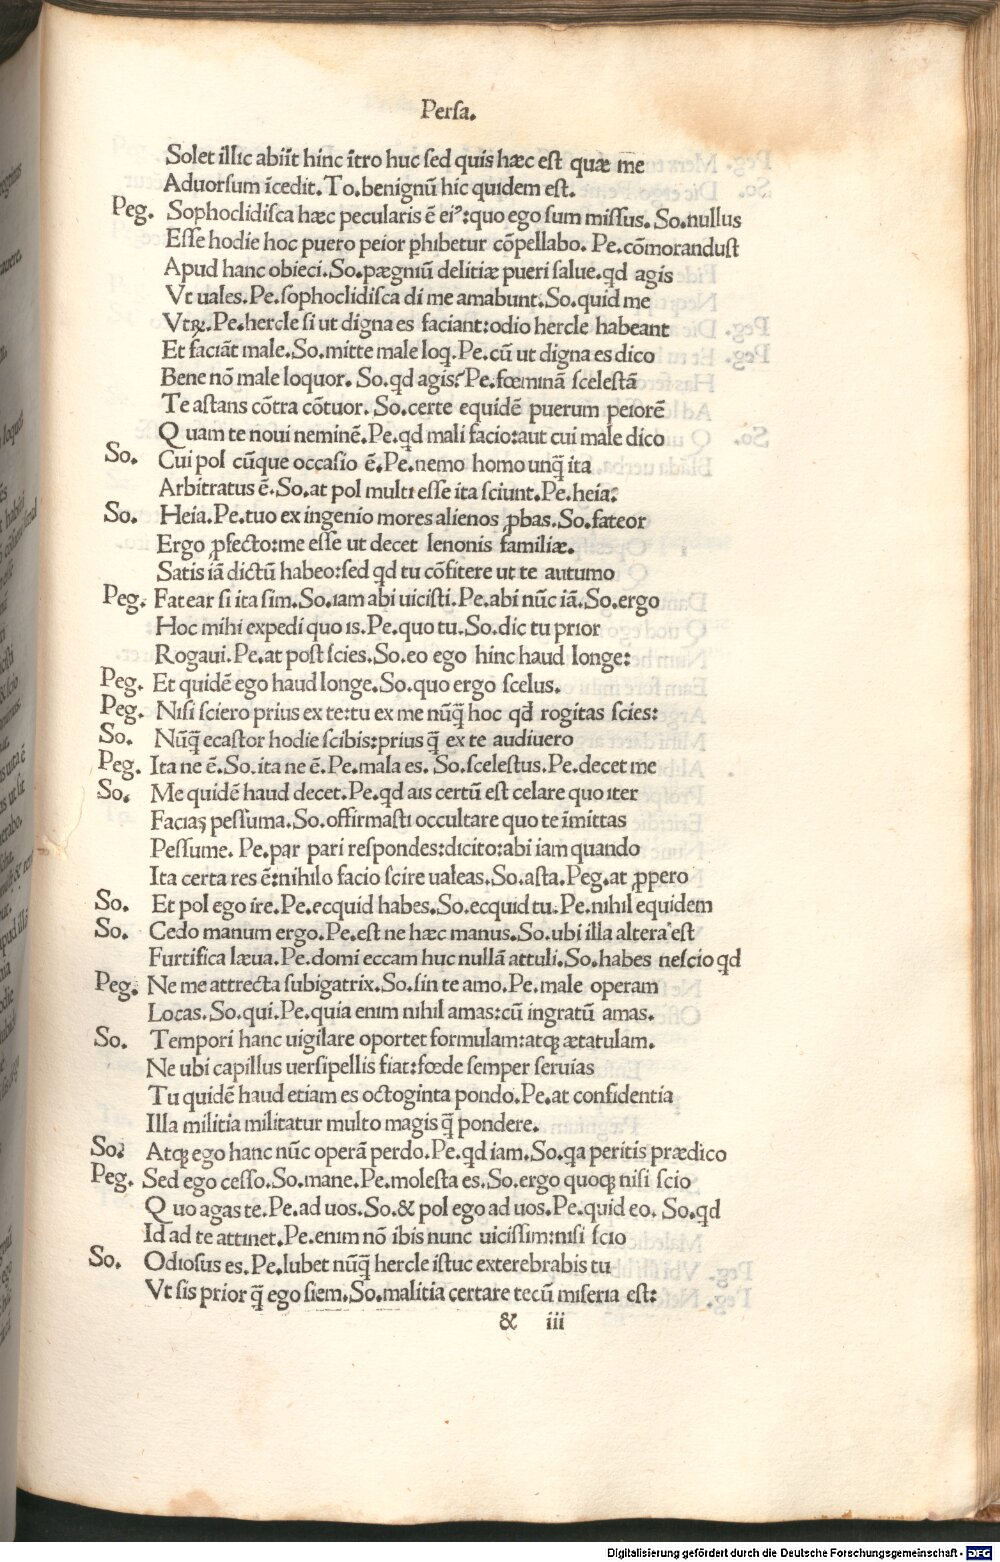 Persa.
Solet illic abiit hinc ĩtro huc sed quis hæc est quæ me
Aduorsum ĩcedit. To. benignũ hic quidem est.
Peg. Sophoclidisca hæc pecularis ẽ eiꝰ: quo ego sum missus. So. nullus
Esse hodie hoc puero peior ꝑhibetur cõpellabo. Pe. cõmorandust
Apud hanc obieci. So. pægniũ delitiæ pueri salue. qd agis
Vt uales. Pe. sophoclidisca di me amabunt. So. quid me
Vtrꝝ. Pe. hercle si ut digna es faciant: odio hercle habeant
Et faciãt male. So. mitte male loq. Pe. cũ ut digna es dico
Bene nõ male loquor. So. qd agis? Pe. fœminã scelestã
Te astans cõtra cõtuor. So. certe equidẽ puerum peiorẽ
Quam te noui neminẽ. Pe. qd mali facio: aut cui male dico
So. Cui pol cũque occasio ẽ. Pe. nemo homo unq̃ ita
Arbitratus ẽ. So. at pol multi esse ita sciunt. Pe. heia.
So. Heia. Pe. tuo ex ingenio mores alienos ꝓbas. So. fateor
Ergo ꝓfecto: me esse ut decet lenonis familiæ.
Satis iã dictũ habeo: sed qd tu cõfitere ut te autumo
Peg. Fatear si ita sim. So. iam abi uicisti. Pe. abi nũc iã. So. ergo
Hoc mihi expedi quo is. Pe. quo tu. So. dic tu prior
Rogaui. Pe. at post scies. So. eo ego hinc haud longe:
Peg. Et quidẽ ego haud longe. So. quo ergo scelus.
Peg. Nisi sciero prius ex te: tu ex me nũq̃ hoc qd rogitas scies:
So. Nũq̃ ecastor hodie scibis: prius q̃ ex te audiuero
Peg. Ita ne ẽ. So. ita ne ẽ. Pe. mala es. So. scelestus. Pe. decet me
So. Me quidẽ haud decet. Pe. qd ais certũ est celare quo iter
Facias pessuma. So. offirmasti occultare quo te ĩmittas
Pessume. Pe. par pari respondes: dicito: abi iam quando
Ita certa res ẽ: nihilo facio scire ualeas. So. asta. Peg. at ꝓpero
So. Et pol ego ire. Pe. ecquid habes. So. ecquid tu. Pe. nihil equidem
So. Cedo manum ergo. Pe. est ne hæc manus. So. ubi illa altera est
Furtifica læua. Pe. domi eccam huc nullã attuli. So. habes nescio qd
Peg. Ne me attrecta subigatrix. So. sin te amo. Pe. male operam
Locas. So. qui. Pe. quia enim nihil amas: cũ ingratũ amas.
So. Tempori hanc uigilare oportet formulam: atqꝫ ætatulam.
Ne ubi capillus uersipellis fiat: fœde semper seruias
Tu quidẽ haud etiam es octoginta pondo. Pe. at confidentia
Illa militia militatur multo magis q̃ pondere.
So. Atqꝫ ego hanc nũc operã perdo. Pe. qd iam. So. qa peritis prædico
Peg. Sed ego cesso. So. mane. Pe. molesta es. So. ergo quoqꝫ nisi scio
Quo agas te. Pe. ad uos. So. & pol ego ad uos. Pe. quid eo. So. qd
Id ad te attinet. Pe. enim nõ ibis nunc uicissim: nisi scio
So. Odiosus es. Pe. lubet nũq̃ hercle istuc exterebrabis tu
Vt sis prior q̃ ego siem. So. malitia certare tecũ miseria est:
& iii
Digitalisierung gefördert durch die Deutsche Forschungsgemeinschaft - DFG